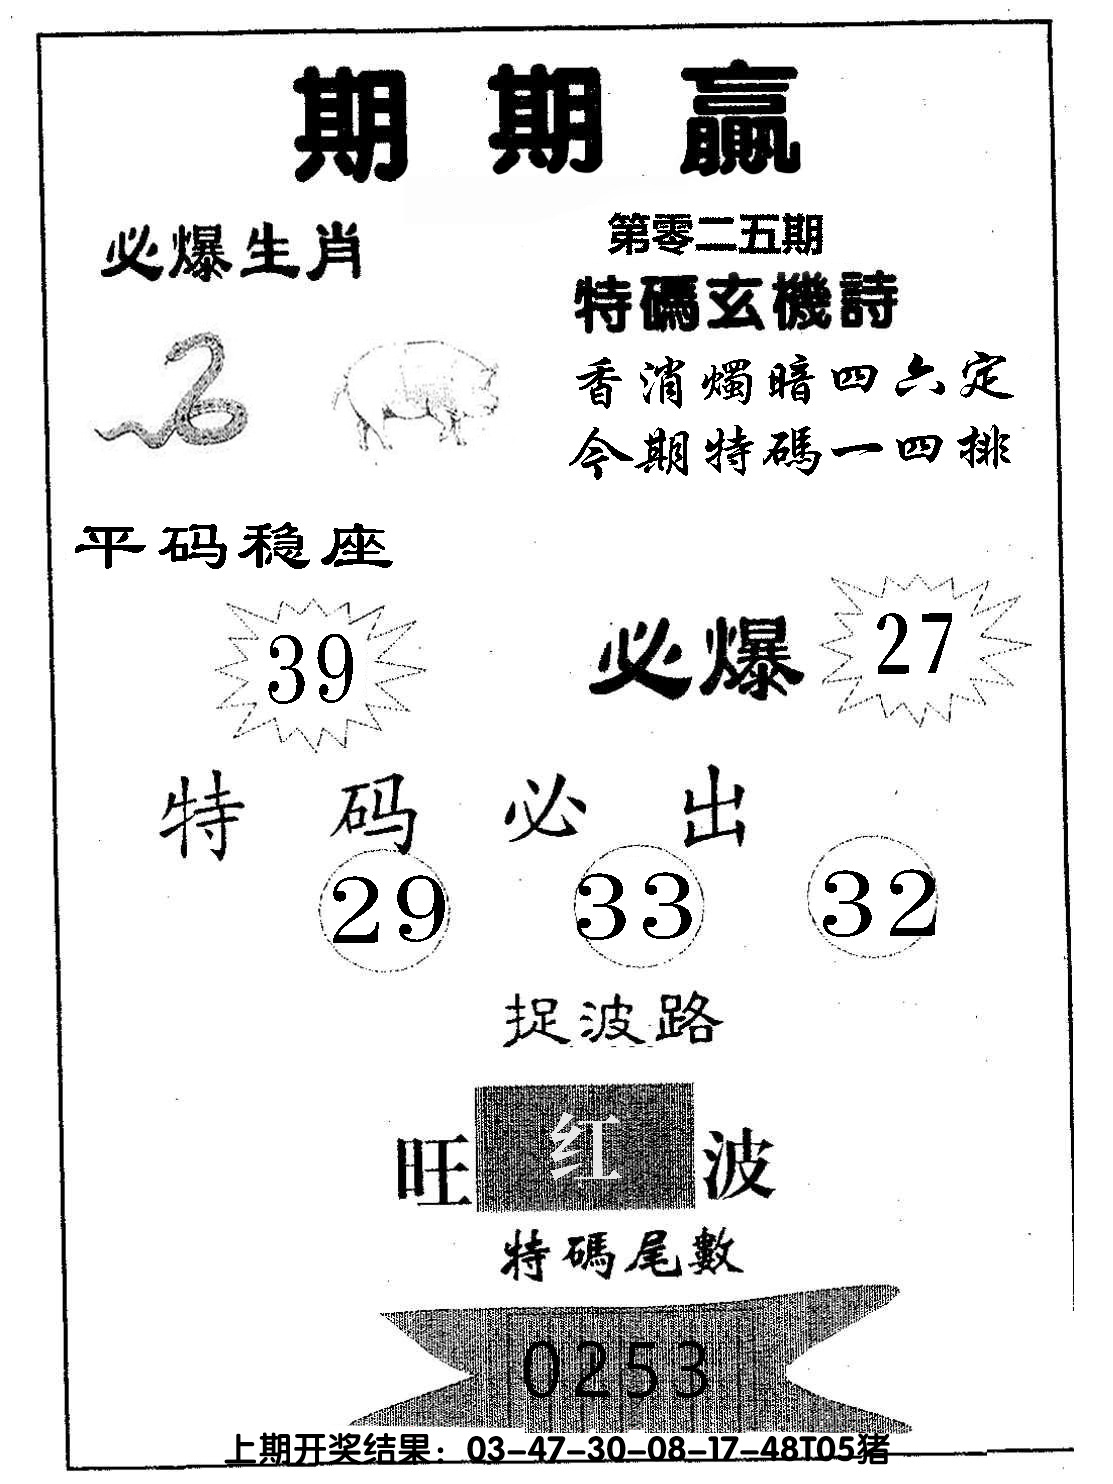 期期赢
必爆生肖
第零二五期
特碼玄機詩
香消燭暗四六定
今期特碼一四排
平码稳座
39
必爆 27
特码必出
29 33 32
捉波路
旺红波
特碼尾數
0253
上期开奖结果：03-47-30-08-17-48T05猪